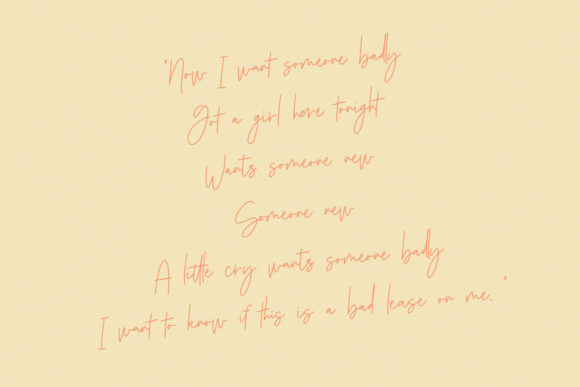 "Now I want someone badly
Got a girl here tonight
Wants someone new
Someone new
A little cry wants someone badly
I want to know if this is a bad lease on me."